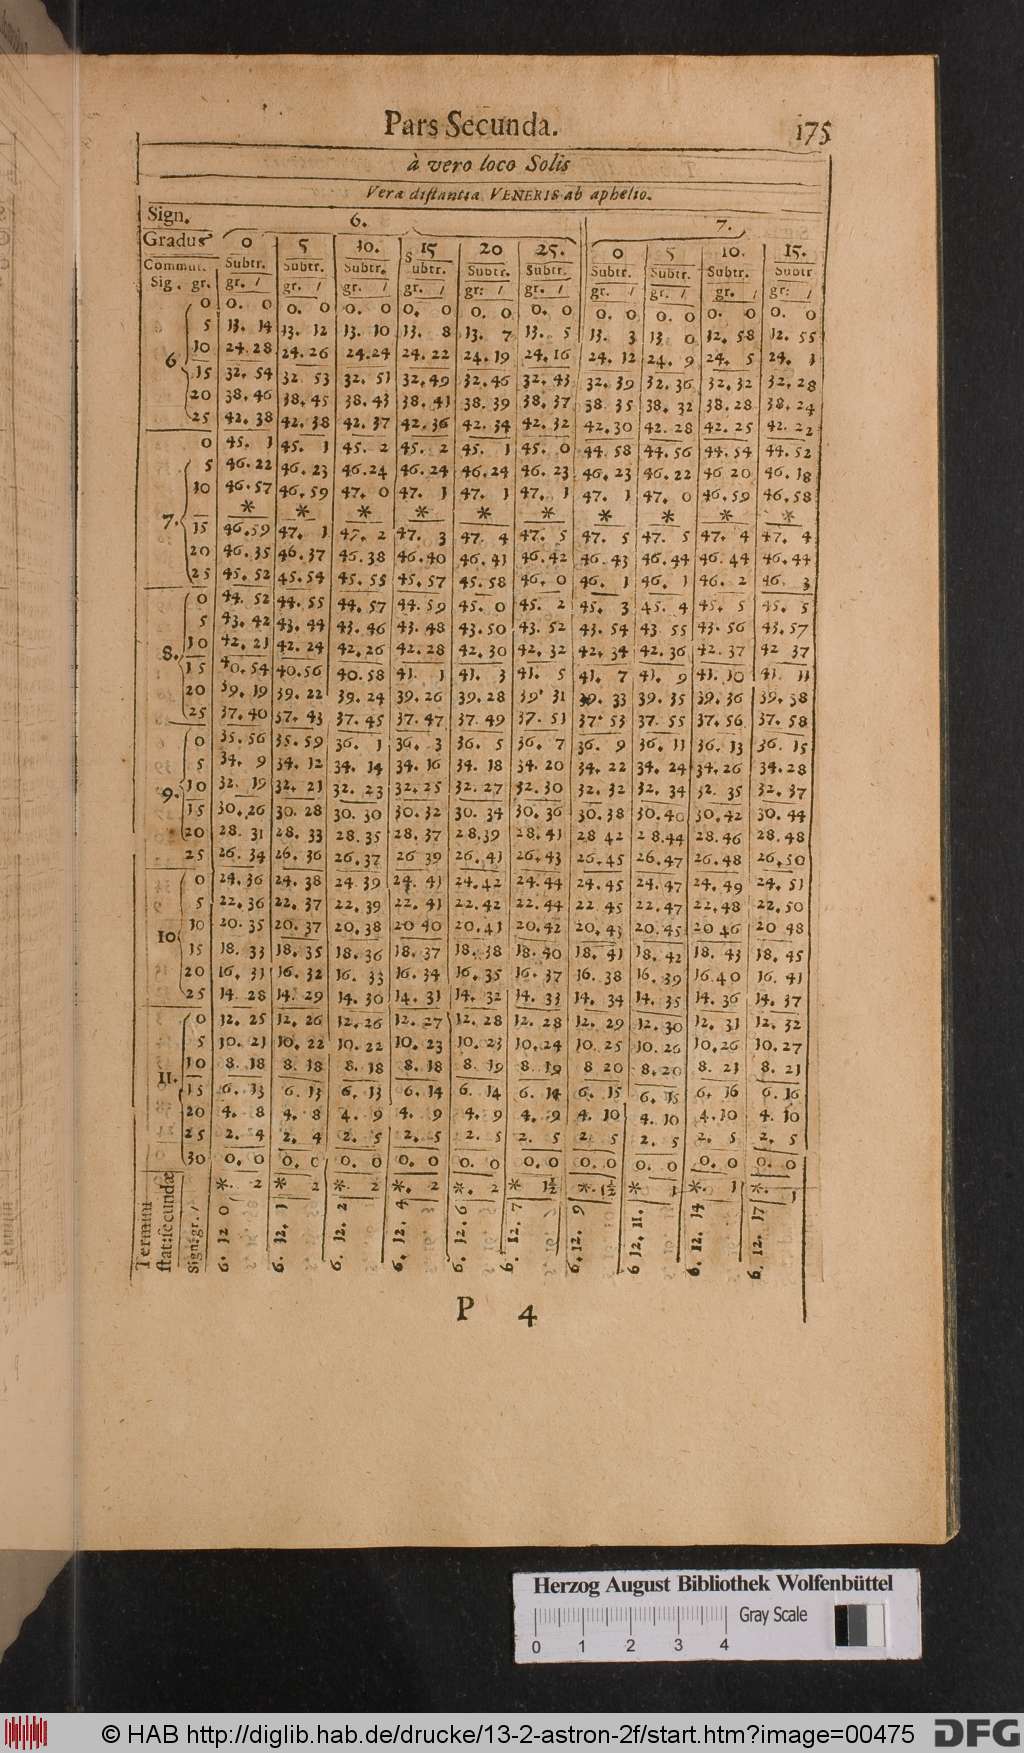 Pars Secunda. 175
à vero loco Solis
Vera distantia VENERIS ab aphelio.
Sign. 6. 7.
Gradus 0 5 10. 15 20 25. 0 5 10. 15.
Commut. Subtr. Subtr. Subtr. Subtr. Subtr. Subtr. Subtr. Subtr. Subtr. Subtr
Sig. gr. gr. / gr. / gr. / gr. / gr: / gr. / gr. / gr. / gr. / gr: /
0 0. 0 0. 0 0. 0 0. 0 0. 0 0. 0 0. 0 0. 0 0. 0 0. 0
5 13. 14 13. 12 13. 10 13. 8 13. 7 13. 5 13. 3 13. 0 12. 58 12. 55
6 10 24.28 24.26 24.24 24.22 24.19 24.16 24.12 24. 9 24. 5 24. 1
15 32. 54 32 53 32. 51 32.49 32.46 32.43 32.39 32.36 32.32 32.28
20 38.46 38.45 38.43 38.41 38.39 38.37 38 35 38. 32 38.28 38.24
25 42. 38 42. 38 42. 37 42. 36 42. 34 42. 32 42.30 42. 28 42. 25 42. 22
0 45. 1 45. 1 45. 2 45. 2 45. 1 45. 0 44. 58 44. 56 44. 54 44. 52
5 46.22 46.23 46.24 46.24 46.24 46. 23 46.23 46.22 46 20 46.18
10 46.57 46.59 47. 0 47. 1 47. 1 47. 1 47. 1 47. 0 46.59 46.58
* * * * * * * * * *
7. 15 46.59 47. 1 47. 2 47. 3 47. 4 47. 5 47. 5 47. 5 47. 4 47. 4
20 46.35 46.37 46.38 46.40 46.41 46.42 46.43 46.44 46.44 46.44
25 45. 52 45.54 45. 55 45.57 45.58 46. 0 46. 1 46. 1 46. 2 46. 3
0 44. 52 44.55 44.57 44.59 45. 0 45. 2 45. 3 45. 4 45. 5 45. 5
5 43. 42 43. 44 43.46 43.48 43.50 43.52 43.54 43 55 43.56 43.57
8. 10 42.21 42.24 42.26 42.28 42.30 42.32 42.34 42.36 42.37 42 37
15 40.54 40.56 40.58 41. 1 41. 3 41. 5 41. 7 41. 9 41.10 41. 11
20 39. 19 39. 22 39. 24 39. 26 39. 28 39 31 39. 33 39. 35 39. 36 39. 38
25 37.40 37. 43 37.45 37.47 37.49 37. 51 37 53 37 55 37.56 37.58
0 35.56 35.59 36. 1 36. 3 36. 5 36. 7 36. 9 36. 11 36. 13 36. 15
5 34. 9 34. 12 34. 14 34. 16 34. 18 34. 20 34. 22 34. 24 34.26 34.28
9. 10 32. 19 32. 21 32. 23 32.25 32.27 32.30 32. 32 32. 34 32. 35 32.37
15 30.26 30. 28 30. 30 30. 32 30. 34 30. 36 30.38 30.40 30.42 30. 44
20 28. 31 28. 33 28.35 28.37 28.39 28.41 28 42 28.44 28.46 28.48
25 26. 34 26. 36 26.37 26 39 26.41 26.43 26.45 26.47 26.48 26.50
0 24.36 24.38 24 39 24. 41 24.42 24.44 24.45 24.47 24.49 24.51
5 22.36 22.37 22.39 22.41 22.42 22.44 22 45 22.47 22.48 22.50
10 10 20.35 20.37 20.38 20 40 20.41 20.42 20.43 20.45 20 46 20 48
15 18.33 18.35 18.36 18.37 18.38 18.40 18.41 18.42 18.43 18.45
20 16. 31 16. 32 16. 33 16.34 16.35 16.37 16.38 16.39 16.40 16. 41
25 14 28 14. 29 14. 30 14. 31 14. 32 14. 33 14. 34 14. 35 14. 36 14. 37
0 12. 25 12. 26 12.26 12. 27 12. 28 12. 28 12. 29 12.30 12. 31 12. 32
5 10. 21 10. 22 10. 22 10. 23 10. 23 10.24 10. 25 10.26 10.26 10.27
11. 10 8. 18 8. 18 8. 18 8. 18 8. 19 8. 19 8 20 8.20 8. 21 8. 21
15 6. 13 6. 13 6. 13 6. 14 6. 14 6. 14 6. 15 6. 15 6. 16 6. 16
20 4. 8 4. 8 4. 9 4. 9 4. 9 4. 9 4. 10 4. 10 4.10 4. 10
25 2. 4 2. 4 2. 5 2. 5 2. 5 2. 5 2 5 2. 5 2. 5 2. 5
30 0. 0 0. 0 0. 0 0. 0 0. 0 0. 0 0. 0 0. 0 0. 0 0. 0
*. 2 * 2 *. 2 *. 2 *. 2 * 1½ *. 1½ * 1 *. 1 *. 1
Termini
stat: secundæ
Sign. gr. /
6. 12 0
6. 12. 1
6. 12. 2
6. 12. 4
6. 12. 6
6. 12. 7
6. 12. 9
6 12. 11.
6. 12. 14
6. 12. 17
P 4
Herzog August Bibliothek Wolfenbüttel
Gray Scale
0 1 2 3 4
© HAB http://diglib.hab.de/drucke/13-2-astron-2f/start.htm?image=00475 DFG